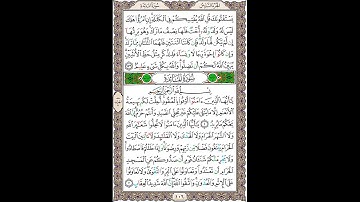 سُورَةُ النِّسَاءِ الجُزْءُ السَّادِسُ
يَسْتَفْتُونَكَ قُلِ ٱللَّهُ يُفْتِيكُمْ فِي ٱلْكَلَٰلَةِ إِنِ ٱمْرُؤٌا۟ هَلَكَ
لَيْسَ لَهُۥ وَلَدٌ وَلَهُۥٓ أُخْتٌ فَلَهَا نِصْفُ مَا تَرَكَ وَهُوَ يَرِثُهَآ
إِن لَّمْ يَكُن لَّهَا وَلَدٌ فَإِن كَانَتَا ٱثْنَتَيْنِ فَلَهُمَا ٱلثُّلُثَانِ مِمَّا تَرَكَ
وَإِن كَانُوٓا۟ إِخْوَةً رِّجَالًا وَنِسَآءً فَلِلذَّكَرِ مِثْلُ حَظِّ ٱلْأُنثَيَيْنِ
يُبَيِّنُ ٱللَّهُ لَكُمْ أَن تَضِلُّوا۟ وَٱللَّهُ بِكُلِّ شَيْءٍ عَلِيمٌۢ ١٧٦
سُورَةُ المَائِدَةِ
بِسْمِ ٱللَّهِ ٱلرَّحْمَٰنِ ٱلرَّحِيمِ
يَٰٓأَيُّهَا ٱلَّذِينَ ءَامَنُوٓا۟ أَوْفُوا۟ بِٱلْعُقُودِ أُحِلَّتْ لَكُم بَهِيمَةُ
ٱلْأَنْعَٰمِ إِلَّا مَا يُتْلَىٰ عَلَيْكُمْ غَيْرَ مُحِلِّي ٱلصَّيْدِ وَأَنتُمْ حُرُمٌ إِنَّ ٱللَّهَ
يَحْكُمُ مَا يُرِيدُ ١ يَٰٓأَيُّهَا ٱلَّذِينَ ءَامَنُوا۟ لَا تُحِلُّوا۟ شَعَٰٓئِرَ ٱللَّهِ
وَلَا ٱلشَّهْرَ ٱلْحَرَامَ وَلَا ٱلْهَدْيَ وَلَا ٱلْقَلَٰٓئِدَ وَلَآ ءَآمِّينَ ٱلْبَيْتَ
ٱلْحَرَامَ يَبْتَغُونَ فَضْلًا مِّن رَّبِّهِمْ وَرِضْوَٰنًا وَإِذَا حَلَلْتُمْ فَٱصْطَادُوا۟
وَلَا يَجْرِمَنَّكُمْ شَنَـَٔانُ قَوْمٍ أَن صَدُّوكُمْ عَنِ ٱلْمَسْجِدِ
ٱلْحَرَامِ أَن تَعْتَدُوا۟ وَتَعَاوَنُوا۟ عَلَى ٱلْبِرِّ وَٱلتَّقْوَىٰ وَلَا تَعَاوَنُوا۟
عَلَى ٱلْإِثْمِ وَٱلْعُدْوَٰنِ وَٱتَّقُوا۟ ٱللَّهَ إِنَّ ٱللَّهَ شَدِيدُ ٱلْعِقَابِ ٢
١٠٦